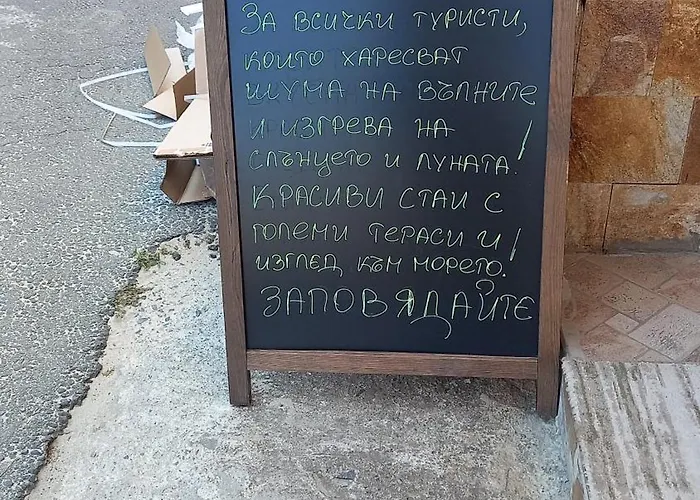 За всички туристи,
които харесват
шума на вълните
и изгрева на
слънцето и луната!
Красиви стаи с
големи тераси и
изглед към морето!
Заповядайте